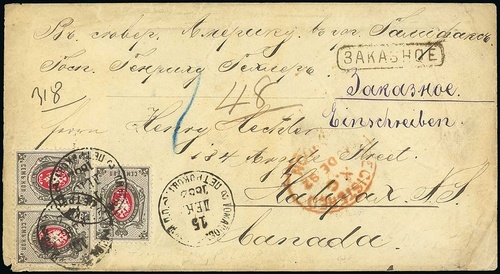 Въ сѣвер. Америку. въ гор. Галифаксъ.
Госп. Генриху Гехлеръ.
ЗАКАЗНОЕ
318
48
Заказное.
Einschreiben.
Herrn Henry Hechler
134 Argyle Street.
Halifax N.S.
Canada.
15
ДЕК.
СЕМЬ КОП.
СЕМЬ КОП.
СЕМЬ КОП.